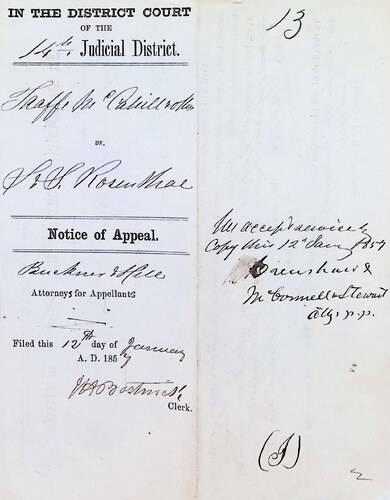 IN THE DISTRICT COURT
OF THE
14th Judicial District.
Taaffe McCahill & Co
vs.
S & S. Rosenthal
Notice of Appeal.
Buckner & Hill
Attorneys for Appellants
Filed this 12th day of January
A. D. 1857
Clerk.
13
We accept service by
Copy this 12th Jany 1857
Crenshaw &
McConnell & Stewart
attys p.p.
(J)